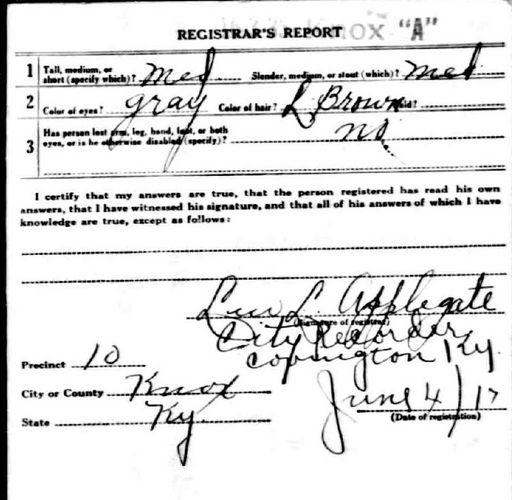 Knox "A"
REGISTRAR'S REPORT
1 Tall, medium, or short (specify which)? Med Slender, medium, or stout (which)? Med
2 Color of eyes? gray Color of hair? L Brown Bald?
3 Has person lost arm, leg, hand, foot, or both eyes, or is he otherwise disabled (specify)? no
I certify that my answers are true, that the person registered has read his own
answers, that I have witnessed his signature, and that all of his answers of which I have
knowledge are true, except as follows:
L. Applegate
(Signature of registrar)
City Recorder
Covington Ky
Precinct 10
City or County Knox
State Ky.
June 4/17
(Date of registration)